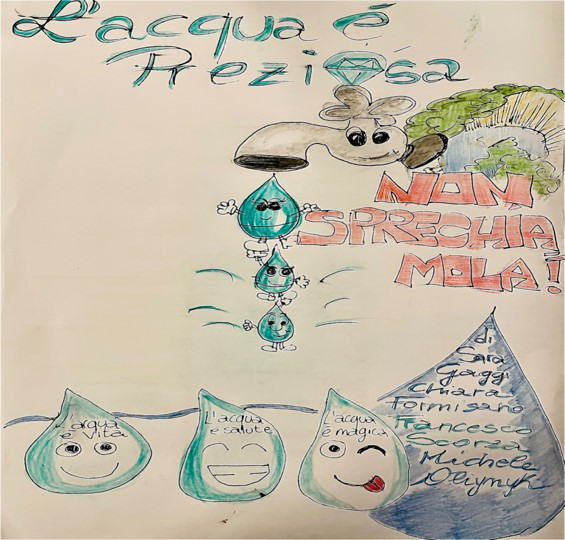 L'acqua é
Preziosa
NON
SPRECHIA
MOLA!
L'acqua
è vita
L'acqua
è salute
L'acqua
è magica
di
Sara
Gaggi
Chiara
Formisano
Francesco
Scorza
Michele
Oliynyk